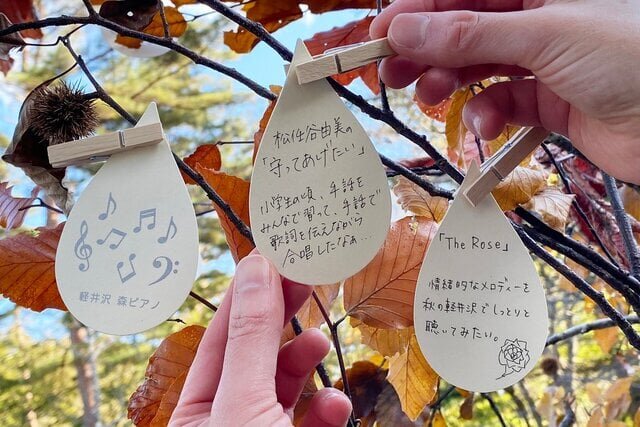 軽井沢 森ピアノ
松任谷由美の
「守ってあげたい」
小学生の頃、手話を
みんなで習って、手話で
歌詞を伝えながら
合唱したなぁ…
「The Rose」
情緒的なメロディーを
秋の軽井沢でしっとりと
聴いてみたい。